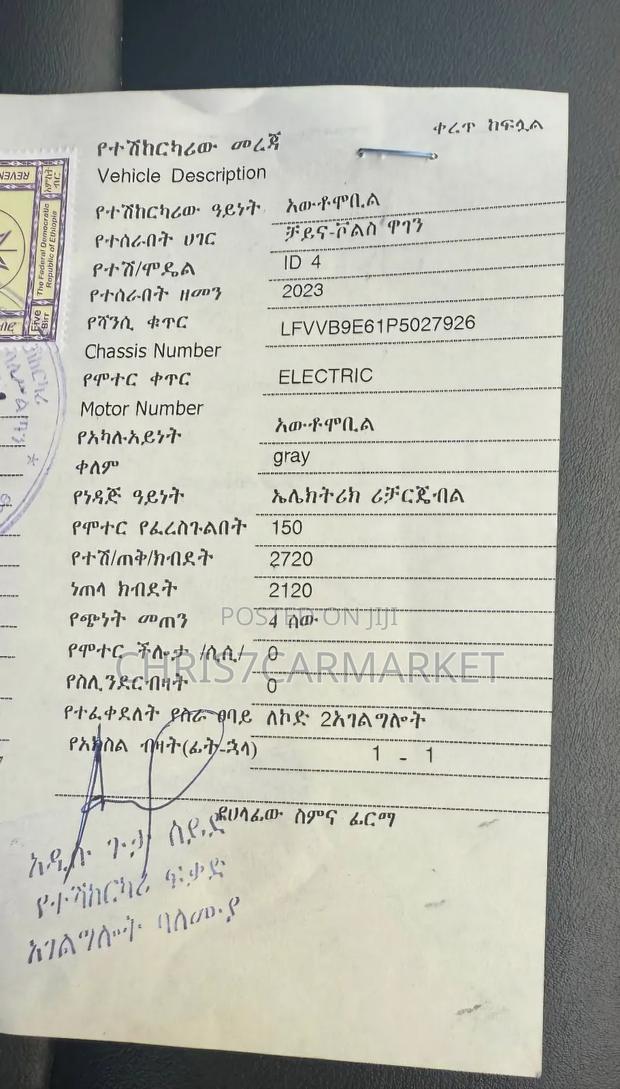 ቀረጥ ከፍሏል
የተሽከርካሪው መረጃ
Vehicle Description
የተሽከርካሪው ዓይነት አውቶሞቢል
የተሰራበት ሀገር ቻይና-ቮልስ ዋገን
የተሽ/ሞዴል ID 4
የተሰራበት ዘመን 2023
የሻንሲ ቁጥር LFVVB9E61P5027926
Chassis Number
የሞተር ቀጥር ELECTRIC
Motor Number
የአካሉአይነት አውቶሞቢል
ቀለም gray
የነዳጅ ዓይነት ኤሌክትሪክ ሪቻርጄብል
የሞተር የፈረስጉልበት 150
የተሽ/ጠቅ/ክብደት 2720
ነጠላ ክብደት 2120
የጭነት መጠን 4 ሰው
POSTED ON JIJI
የሞተር ችሎታ /ሲሲ/ 0
CHRIS7CARMARKET
የስሊንደርብዛት 0
የተፈቀደለት የስራ ፀባይ ለኮድ 2አገልግሎት
የአክስል ብዛት(ፊት-ኋላ) 1 - 1
የሀላፊው ስምና ፊርማ
አዲሱ ጉታ ሰይድ
የተሽከርካሪ ፍቃድ
አገልግሎት ባለሙያ
REVEN
The Federal Democratic
Republic of Ethiopia
አምስት
ብር
Five
Birr